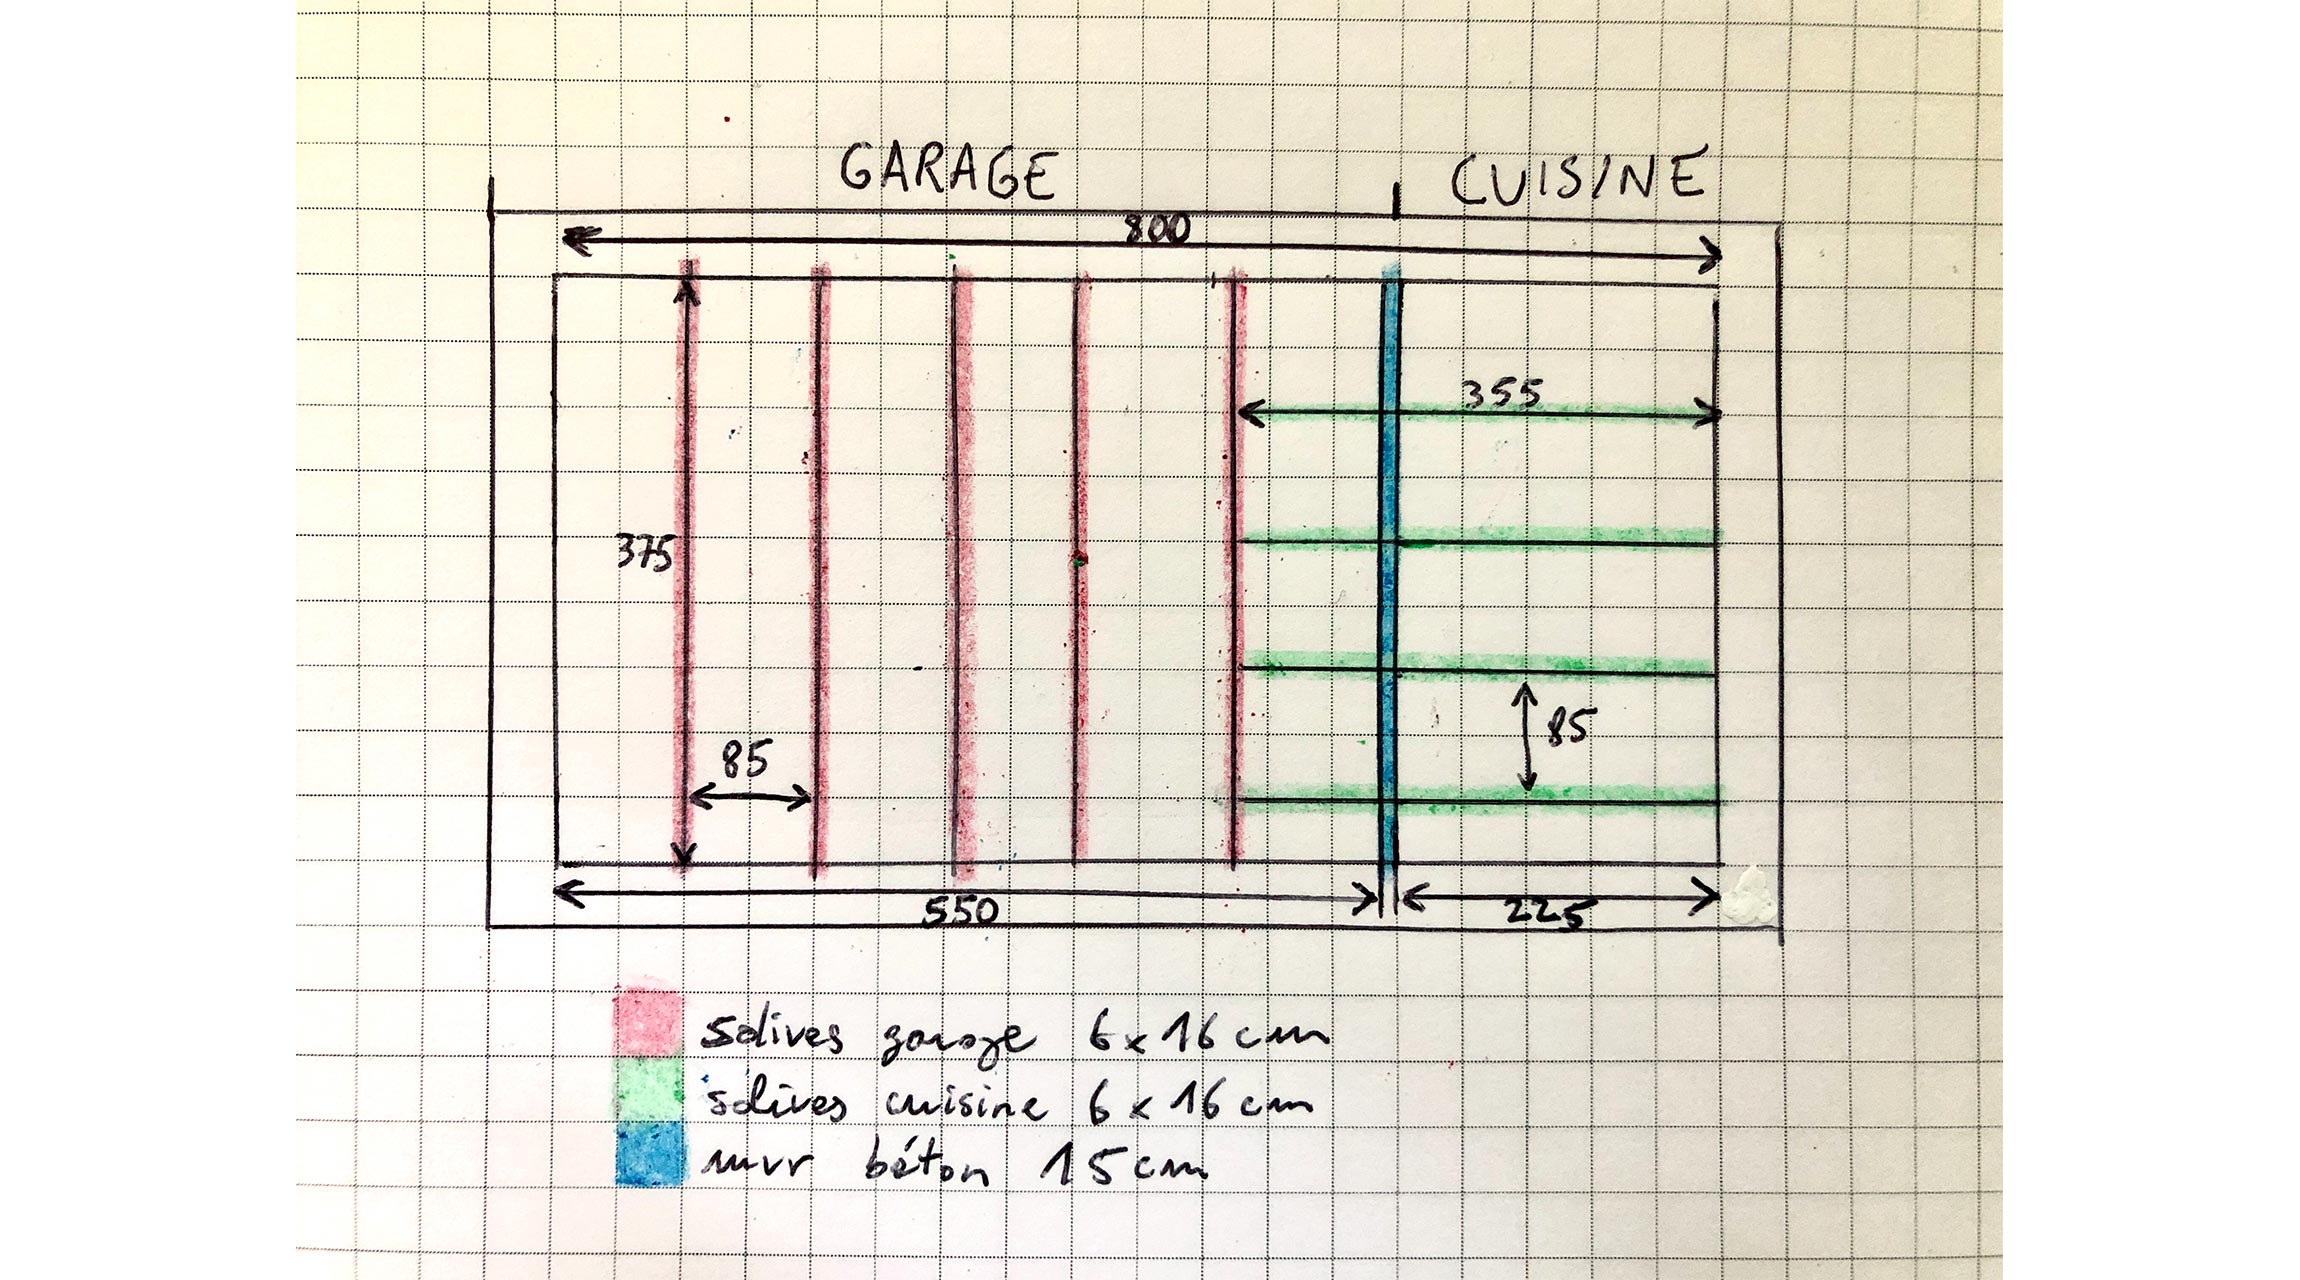 GARAGE CUISINE
800
355
375
85
85
550
225
solives garage 6 x 16 cm
solives cuisine 6 x 16 cm
mur béton 15 cm